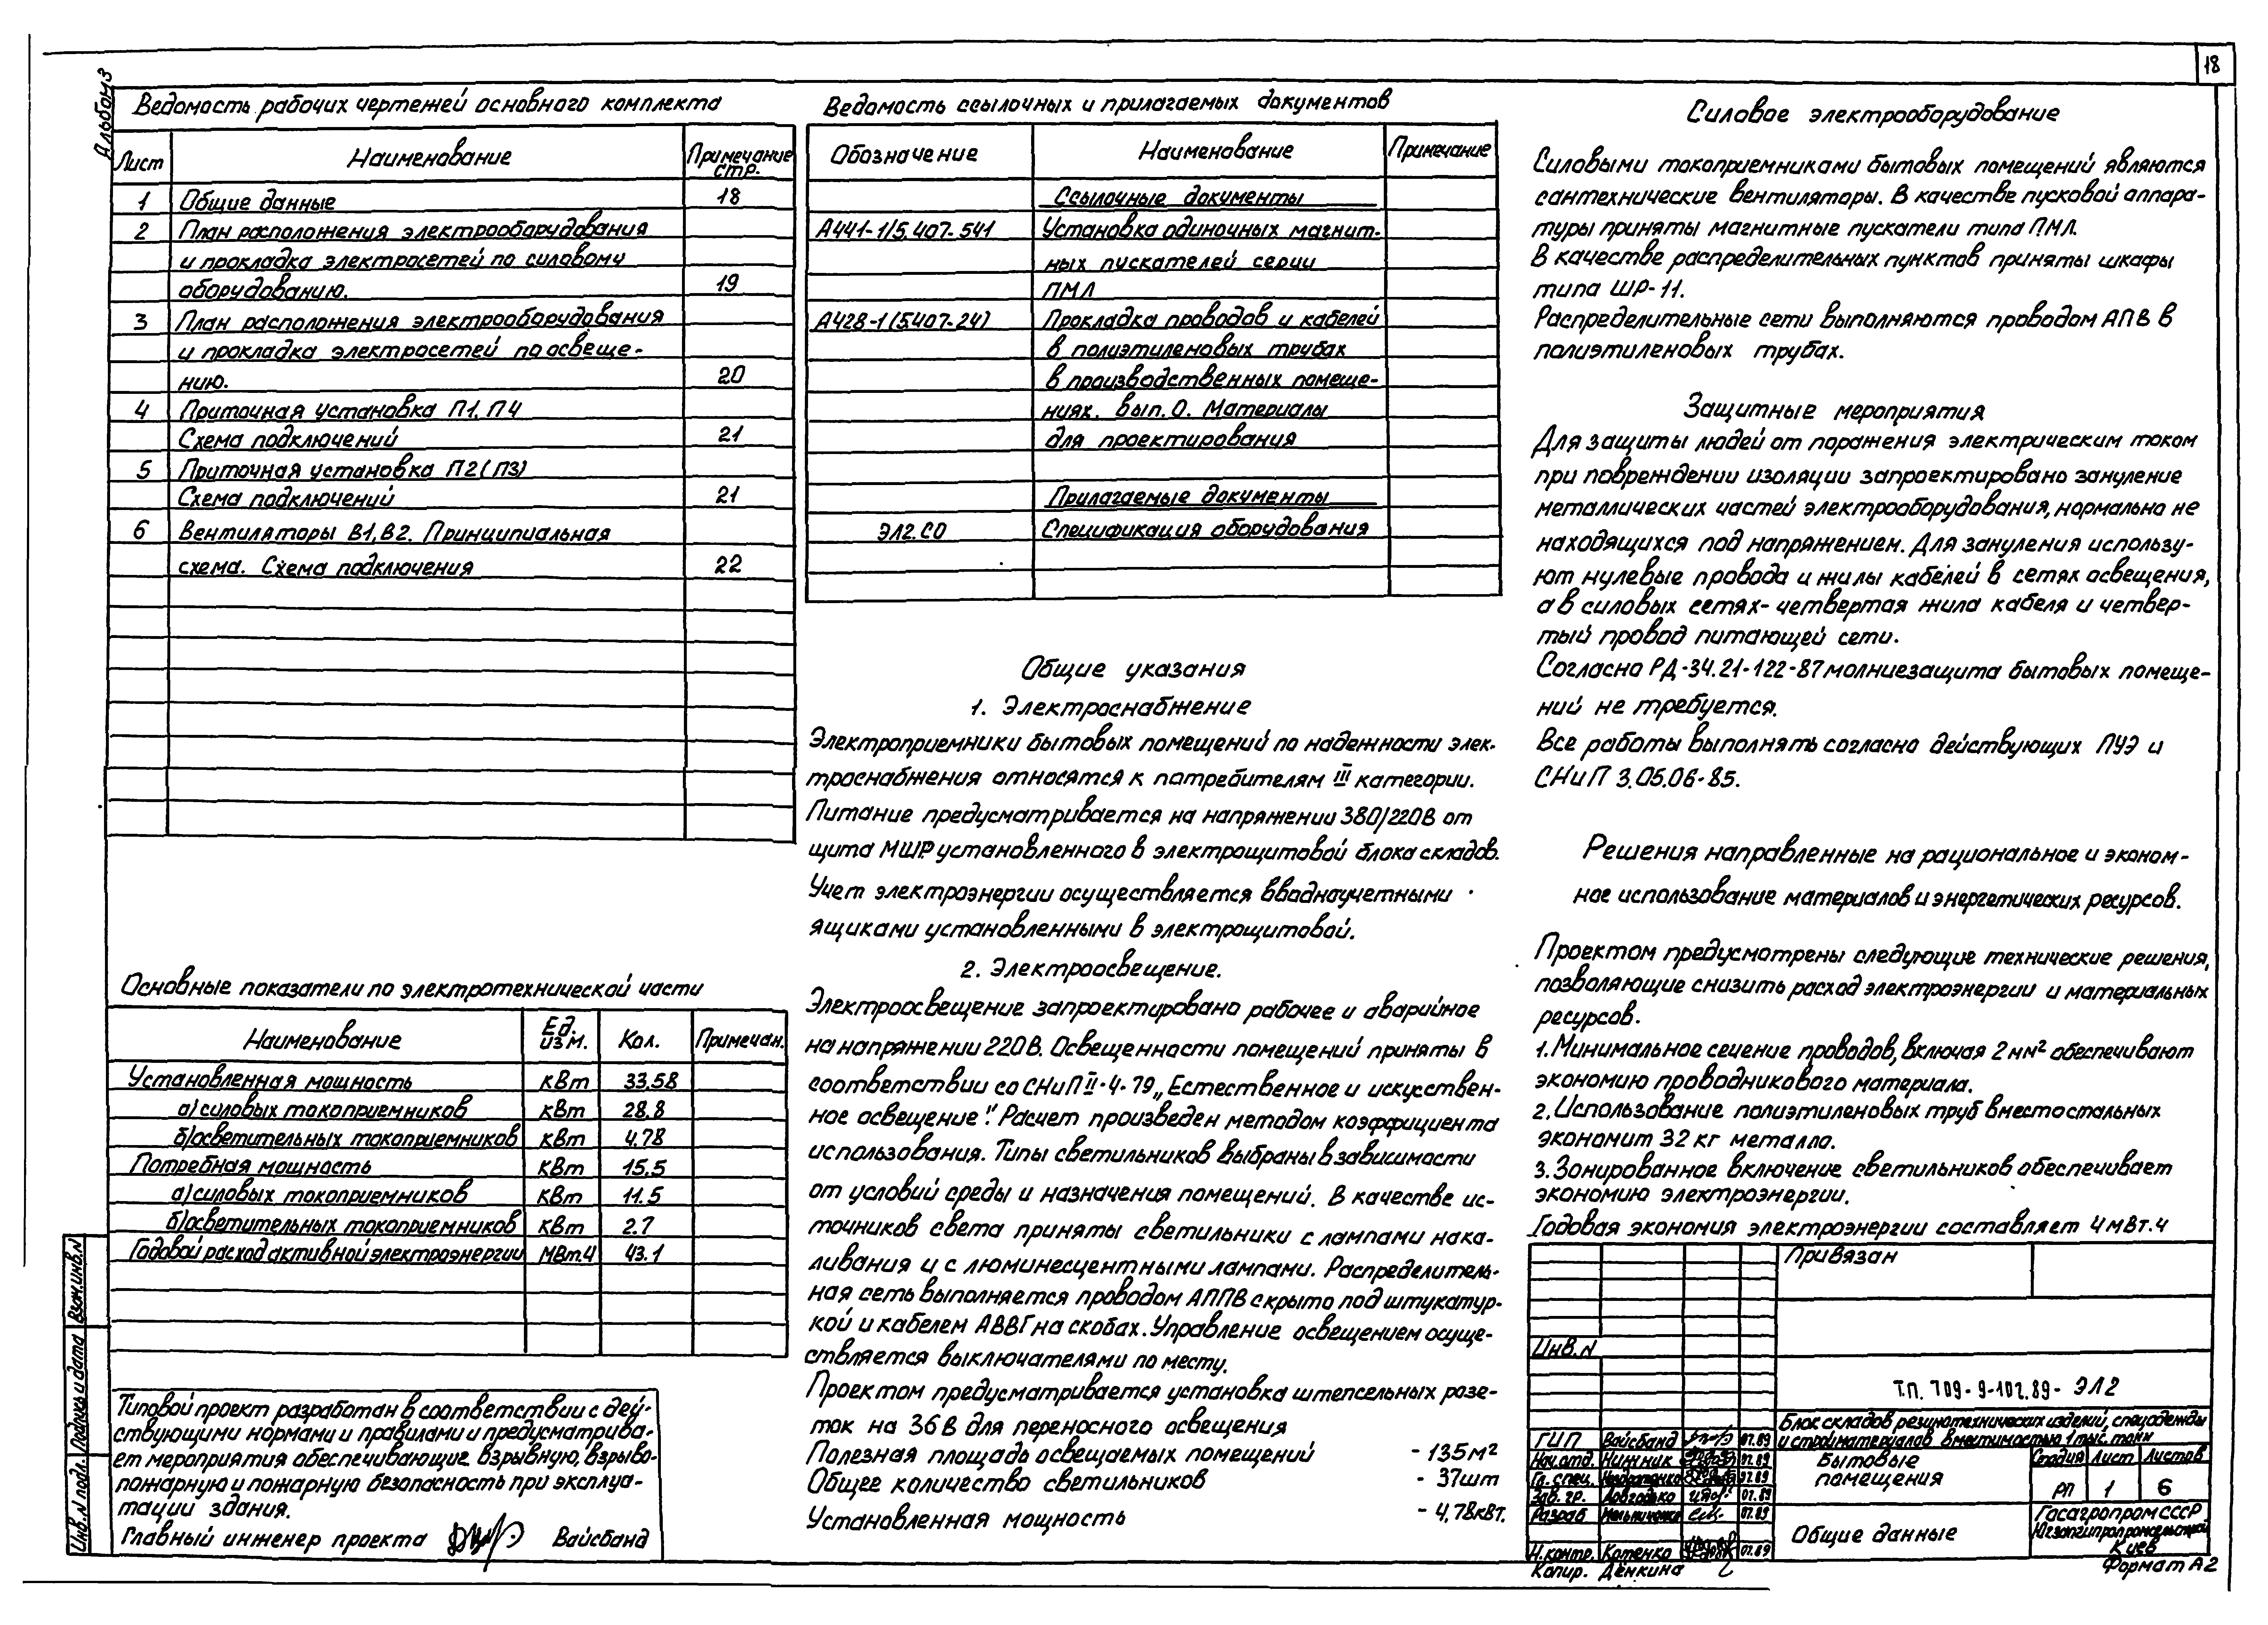 18
Альбом 3
Ведомость рабочих чертежей основного комплекта
Лист Наименование Примечание стр.
1 Общие данные 18
2 План расположения электрооборудования
и прокладка электросетей по силовому
оборудованию. 19
3 План расположения электрооборудования
и прокладка электросетей по освеще-
нию. 20
4 Приточная установка П1, П4
Схема подключений 21
5 Приточная установка П2 (П3)
Схема подключений 21
6 Вентиляторы В1, В2. Принципиальная
схема. Схема подключения 22
Основные показатели по электротехнической части
Наименование Ед. изм. Кол. Примечан.
Установленная мощность кВт 33.58
а) силовых токоприемников кВт 28.8
б) осветительных токоприемников кВт 4.78
Потребная мощность кВт 15.5
а) силовых токоприемников кВт 11.5
б) осветительных токоприемников кВт 2.7
Годовой расход активной электроэнергии МВт.ч 43.1
Типовой проект разработан в соответствии с дей-
ствующими нормами и правилами и предусматрива-
ет мероприятия обеспечивающие взрывную, взрыво-
пожарную и пожарную безопасность при эксплуа-
тации здания.
Главный инженер проекта Вайсбанд
Взам.инв.N
Подпись и дата
Инв.N подл.
Ведомость ссылочных и прилагаемых документов
Обозначение Наименование Примечание
Ссылочные документы
А441-1/5.407-541 Установка одиночных магнит-
ных пускателей серии
ПМЛ
А428-1(5.407-24) Прокладка проводов и кабелей
в полиэтиленовых трубах
в производственных помеще-
ниях. вып. 0. Материалы
для проектирования
Прилагаемые документы
ЭЛ2.СО Спецификация оборудования
Общие указания
1. Электроснабжение
Электроприемники бытовых помещений по надежности элек-
троснабжения относятся к потребителям III категории.
Питание предусматривается на напряжении 380/220В от
щита МШР установленного в электрощитовой блока складов.
Учет электроэнергии осуществляется вводноучетными
ящиками установленными в электрощитовой.
2. Электроосвещение.
Электроосвещение запроектировано рабочее и аварийное
на напряжении 220В. Освещенности помещений приняты в
соответствии со СНиП II-4-79 „Естественное и искусствен-
ное освещение". Расчет произведен методом коэффициента
использования. Типы светильников выбраны в зависимости
от условий среды и назначения помещений. В качестве ис-
точников света приняты светильники с лампами нака-
ливания и с люминесцентными лампами. Распределитель-
ная сеть выполняется проводом АППВ скрыто под штукатур-
кой и кабелем АВВГ на скобах. Управление освещением осуще-
ствляется выключателями по месту.
Проектом предусматривается установка штепсельных розе-
ток на 36В для переносного освещения
Полезная площадь освещаемых помещений - 135м²
Общее количество светильников - 37шт
Установленная мощность - 4,78кВт.
Силовое электрооборудование
Силовыми токоприемниками бытовых помещений являются
сантехнические вентиляторы. В качестве пусковой аппара-
туры приняты магнитные пускатели типа ПМЛ.
В качестве распределительных пунктов приняты шкафы
типа ШР-11.
Распределительные сети выполняются проводом АПВ в
полиэтиленовых трубах.
Защитные мероприятия
Для защиты людей от поражения электрическим током
при повреждении изоляции запроектировано зануление
металлических частей электрооборудования, нормально не
находящихся под напряжением. Для зануления использу-
ют нулевые провода и жилы кабелей в сетях освещения,
а в силовых сетях- четвертая жила кабеля и четвер-
тый провод питающей сети.
Согласно РД-34.21-122-87 молниезащита бытовых помеще-
ний не требуется.
Все работы выполнять согласно действующих ПУЭ и
СНиП 3.05.06-85.
Решения направленные на рациональное и эконом-
ное использование материалов и энергетических ресурсов.
Проектом предусмотрены следующие технические решения,
позволяющие снизить расход электроэнергии и материальных
ресурсов.
1. Минимальное сечение проводов, включая 2мм² обеспечивают
экономию проводникового материала.
2. Использование полиэтиленовых труб вместо стальных
экономит 32 кг металла.
3. Зонированное включение светильников обеспечивает
экономию электроэнергии.
Годовая экономия электроэнергии составляет 4 мВт.ч
Привязан
Инв.N
Т.П. 709-9-107.89- ЭЛ2
Блок складов резинотехнических изделий, спецодежды
и стройматериалов вместимостью 1 тыс. тонн
ГИП Вайсбанд 07.89
Нач.отд. Нижник 07.89
Гл. спец. 07.89
Зав. гр. Довгодько 07.89
Разраб 07.89
Н.контр. Котенко 07.89
Бытовые
помещения
Стадия Лист Листов
РП 1 6
Общие данные
Госагропром СССР
Киев
Копир. Дёнкина
Формат А2